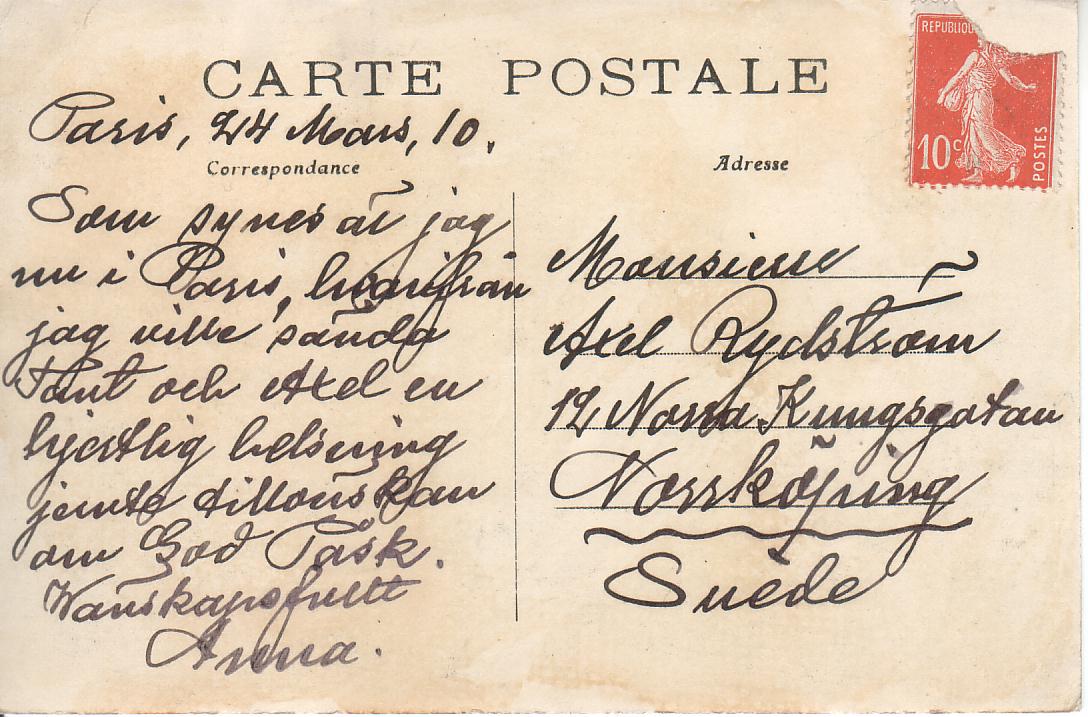 CARTE POSTALE
Paris, 24 Mars, 10.
Correspondance
Som synes är jag
nu i Paris, hvarifrån
jag ville sända
Tant och Axel en
hjertlig helsning
jemte tillönskan
om God Påsk.
Wänskapsfullt
Anna.
Adresse
Monsieur
Axel Rydström
12 Norra Kungsgatan
Norrköping
Suède
REPUBLIQU
10c
POSTES